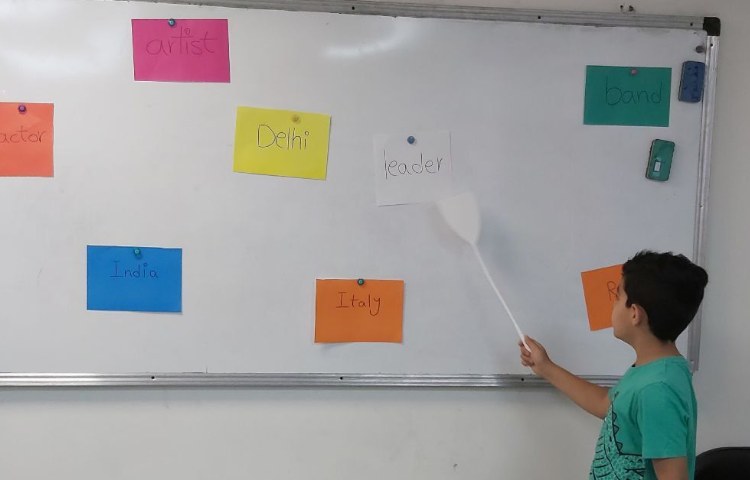 artist
band
actor
Delhi
leader
India
Italy